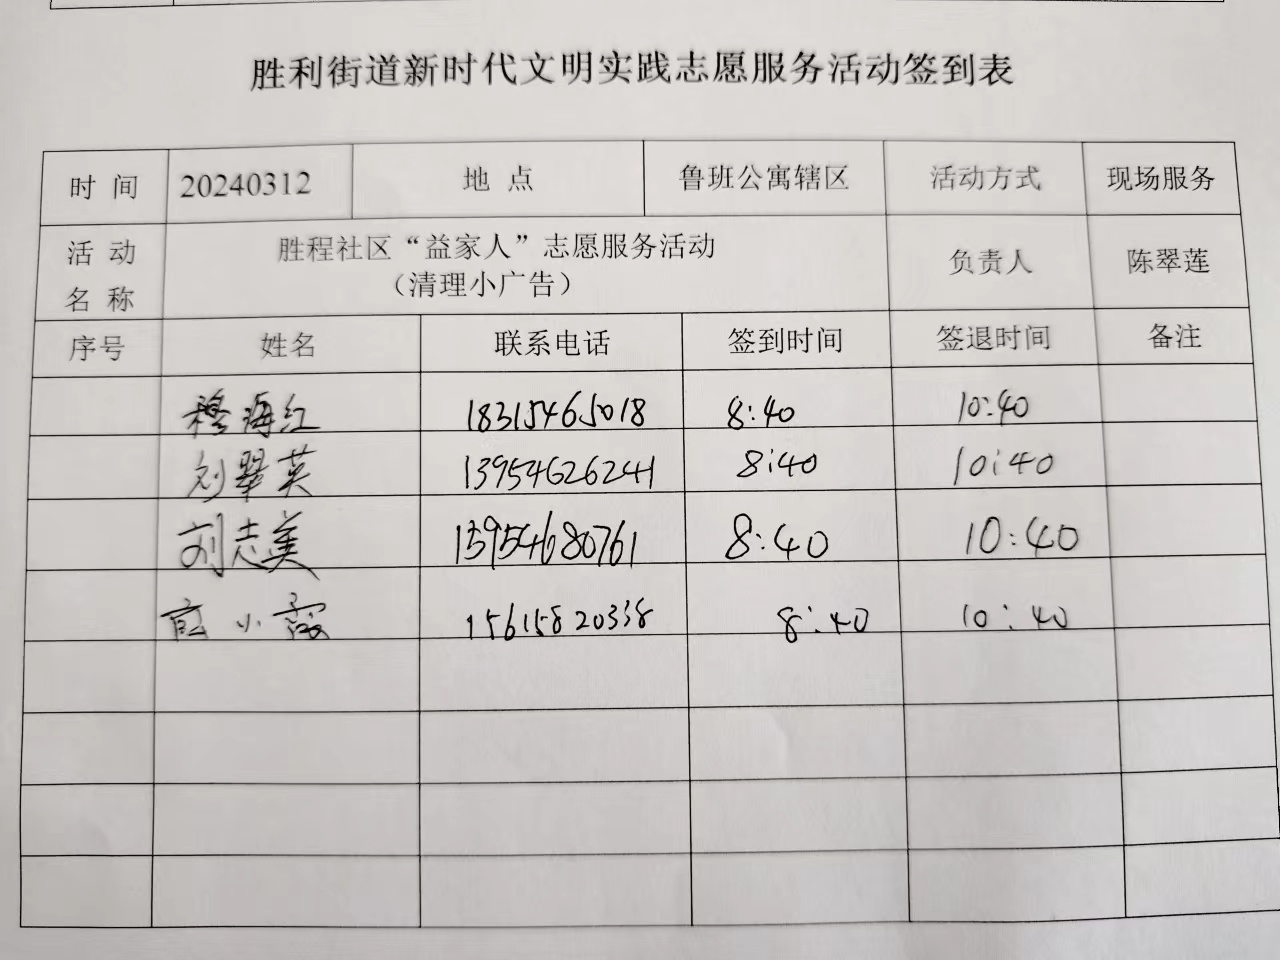 胜利街道新时代文明实践志愿服务活动签到表
时 间 20240312 地 点 鲁班公寓辖区 活动方式 现场服务
活 动 名 称 胜程社区“益家人”志愿服务活动 负责人 陈翠莲
（清理小广告）
序号 姓名 联系电话 签到时间 签退时间 备注
穆海红 18315465018 8:40 10:40
刘翠英 13954626241 8:40 10:40
刘志美 13954680761 8:40 10:40
小霞 15615820338 8:40 10:40